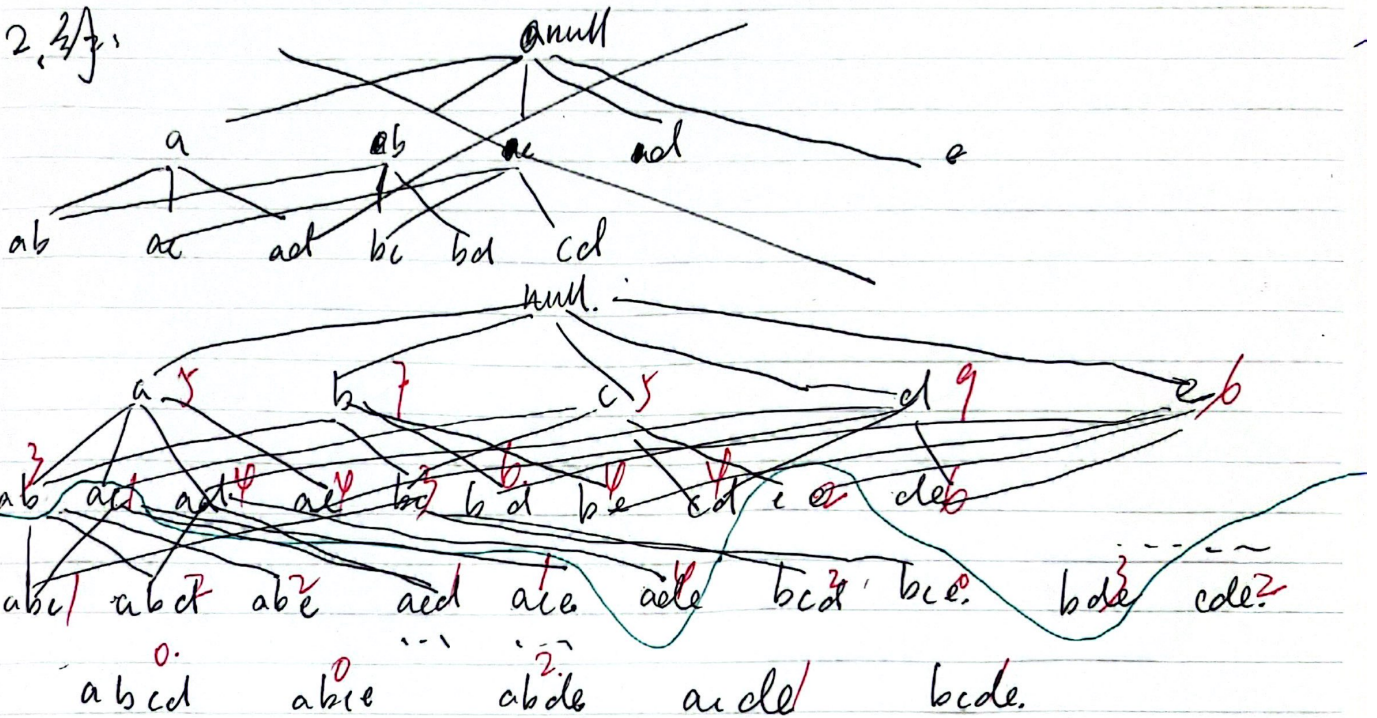 null
a b ac ad e
ab ac ad bc bd cd
null.
a 5 b 7 c 5 d 9 e 6
ab 3 ac 1 ad 4 ae 4 bc 3 bd 6 be 4 cd 4 ce 2 de 6
abc 1 abd 2 abe 2 acd 1 ace 1 ade 4 bcd 2 bce 0 bde 3 cde 2
abcd 0 abce 0 abde 2 acde 1 bcde